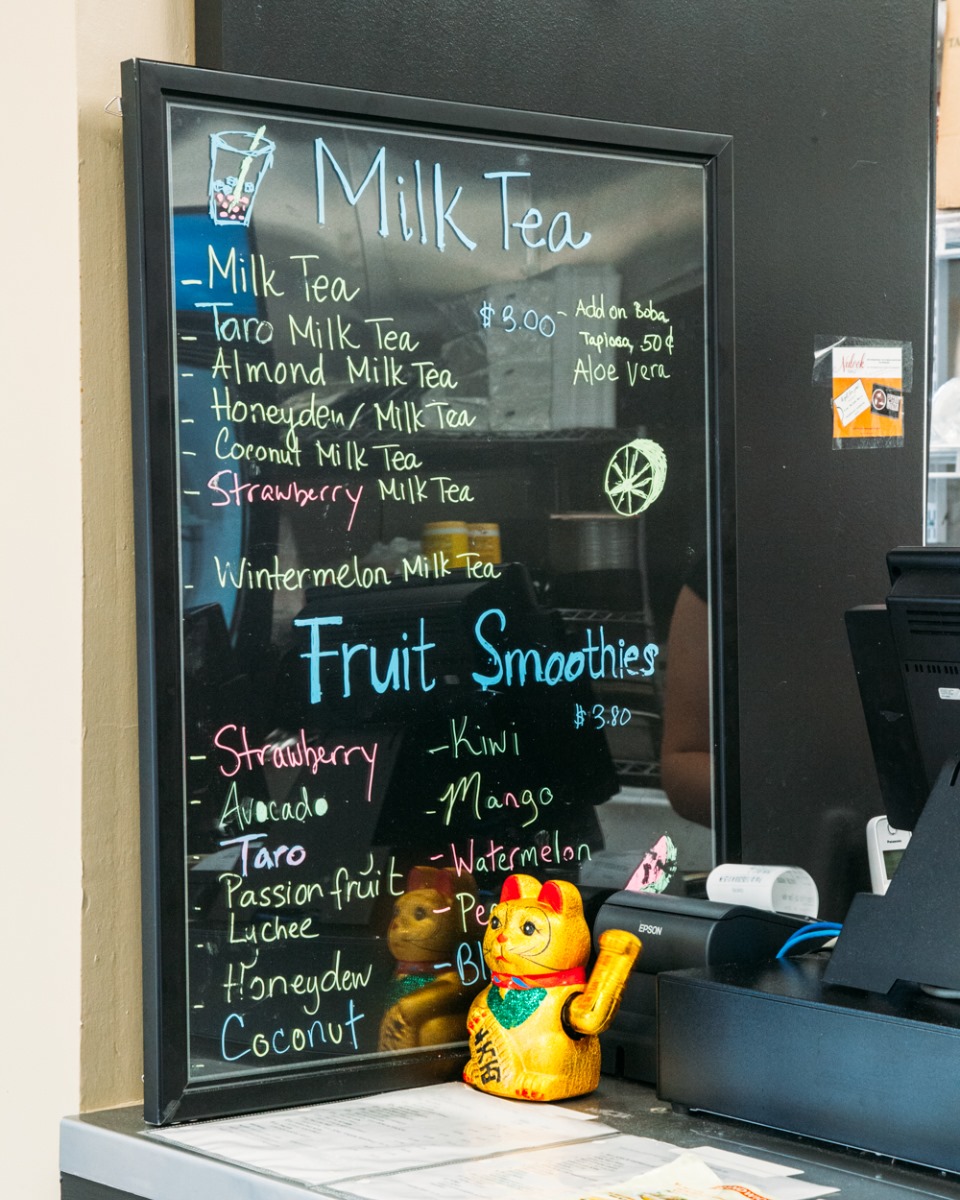 Milk Tea
- Milk Tea
- Taro Milk Tea
- Almond Milk Tea
- Honeydew Milk Tea
- Coconut Milk Tea
- Strawberry Milk Tea
- Wintermelon Milk Tea
$3.00 - Add on Boba
Tapioca, 50¢
Aloe Vera
Fruit Smoothies
$3.80
- Strawberry
- Avocado
- Taro
- Passion fruit
- Lychee
- Honeydew
- Coconut
- Kiwi
- Mango
- Watermelon
- Pe
- Bl
EPSON